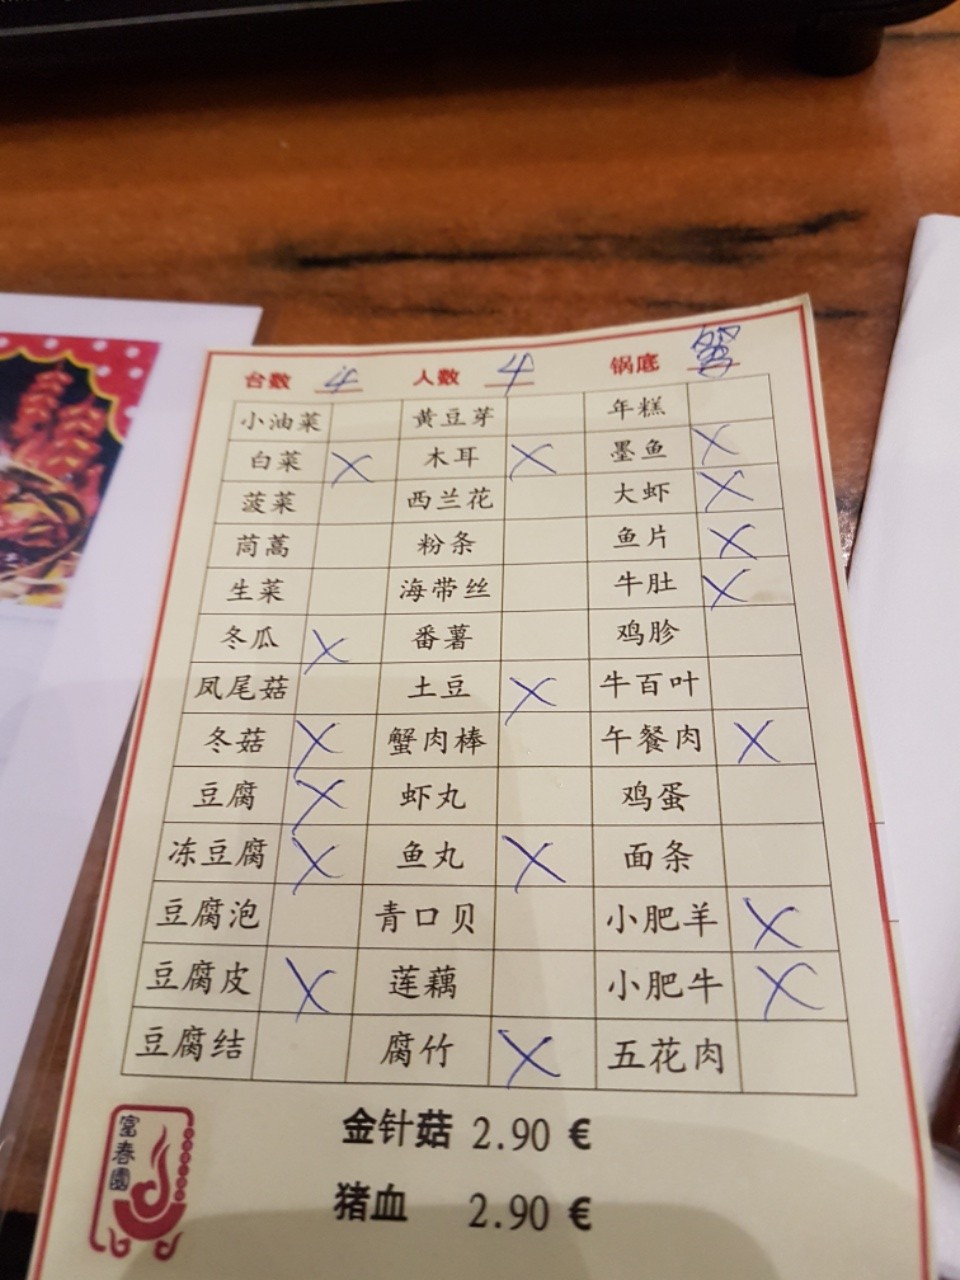 台数 4 人数 4 锅底 蟹
小油菜 黄豆芽 年糕
白菜 X 木耳 X 墨鱼 X
菠菜 西兰花 大虾 X
茼蒿 粉条 鱼片 X
生菜 海带丝 牛肚 X
冬瓜 X 番薯 鸡胗
凤尾菇 土豆 X 牛百叶
冬菇 X 蟹肉棒 午餐肉 X
豆腐 X 虾丸 鸡蛋
冻豆腐 X 鱼丸 X 面条
豆腐泡 青口贝 小肥羊 X
豆腐皮 X 莲藕 小肥牛 X
豆腐结 腐竹 X 五花肉
金针菇 2.90 €
猪血 2.90 €
富春園